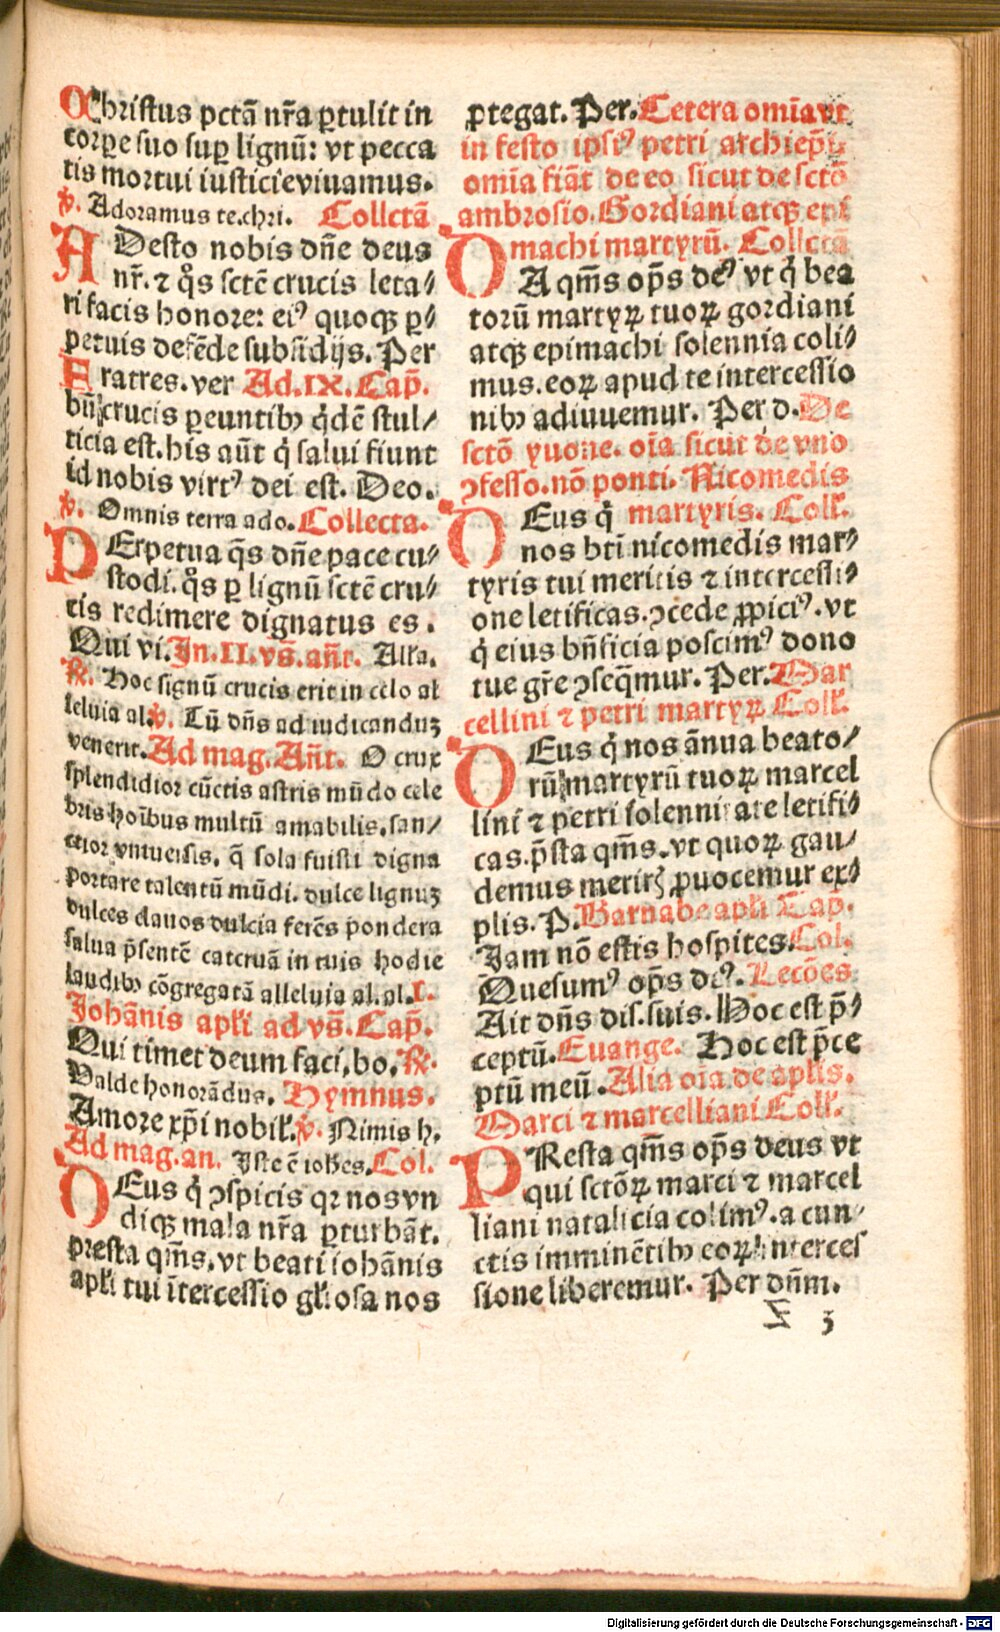 Christus pctā nr̄a ꝑtulit in
corꝑe suo suꝑ lignū: vt pecca
tis mortui iusticie viuamus.
℣. Adoramus te.chri. Collctā
ADesto nobis dn̄e deus
nr̄. ⁊ q̄s sctē crucis leta⸗
ri facis honore: eiꝰ quoqꝫ ꝑ⸗
petuis defēde subsidijs. Per
Fratres. ver Ad.IX.Cap̄.
bū crucis ꝑeuntibꝰ q̇dē stul⸗
ticia est.his aūt q̇ salui fiunt
id nobis virtꝰ dei est. Deo.
℣. Omnis terra ado. Collecta.
PErpetua q̄s dn̄e pace cu⸗
stodi.q̄s ꝑ lignū sctē cru⸗
cis redimere dignatus es.
Qui vi. In.II.vs̄.an̄t. Alľa.
℟. Hoc signū crucis erit in celo al
leluia al. ℣. Cū dn̄s ad iudicanduꝫ
venerit. Ad mag.An̄t. O crux
splendidior cūctis astris mūdo cele
bris hoībus multū amabilis.san⸗
ctior vniuersis. q̄ sola fuisti digna
portare talentū mūdi. dulce lignuꝫ
dulces clauos dulcia ferēs pondera
salua p̄sentē cateruā in tuis hodie
laudibꝰ cōgregatā alleluia al.al. I.
Johānis apľi ad vs̄.Cap̄.
Qui timet deum faci.bo. ℟.
Valde honorādus. Hymnus.
Amore xp̄i nobiľ. ℣. Nimis h.
Ad mag.an. Iste ē iohēs. Col.
DEus q̇ ꝯspicis qꝛ nos vn
diqꝫ mala nr̄a ꝑturbāt.
presta qm̄s.vt beati iohānis
apľi tui ītercessio gľiosa nos
ꝓtegat. Per. Cetera omīa vt
in festo ipsiꝰ petri archiep̄i
omīa fiāt de eo sicut de sctō
ambrosio. Gordiani atqꝫ epi
machi martyrū. Collectā
DA qm̄s op̄s deꝰ vt q̇ bea
torū martyꝝ tuoꝝ gordiani
atqꝫ epimachi solennia coli⸗
mus.eoꝝ apud te intercessio
nibꝰ adiuuemur. Per d. De
sctō yuone. oīa sicut de vno
ꝯfesso.nō ponti. Nicomedis
DEus q̇ martyris. Colľ.
nos btī nicomedis mar⸗
tyris tui meritis ⁊ intercessi⸗
one letificas.ꝯcede ꝓpiciꝰ.vt
q̇ eius bn̄ficia poscimꝰ dono
tue gr̄e ꝯseq̄mur. Per. Mar
cellini ⁊ petri martyꝝ Colľ.
DEus q̇ nos ānua beato⸗
rū martyrū tuoꝝ marcel
lini ⁊ petri solennitate letifi⸗
cas.p̄sta qm̄s.vt quoꝝ gau⸗
demus meritꝭ ꝓuocemur ex⸗
plis. P. Barnabe apľi Cap̄.
Jam nō estis hospites. Col.
Quesumꝰ op̄s dꝰ. Lecōes
Ait dn̄s dis.suis. Hoc est p̄⸗
ceptū. Euange. Hoc est p̄ce
ptū meū. Alia oīa de apľis.
Marci ⁊ marcelliani Colľ.
PResta qm̄s op̄s deus vt
qui sctōꝝ marci ⁊ marcel
liani natalicia colimꝰ.a cun⸗
ctis imminētibꝰ eoꝝ interces
sione liberemur. Per dn̄m.
X̄ 3
Digitalisierung gefördert durch die Deutsche Forschungsgemeinschaft - DFG